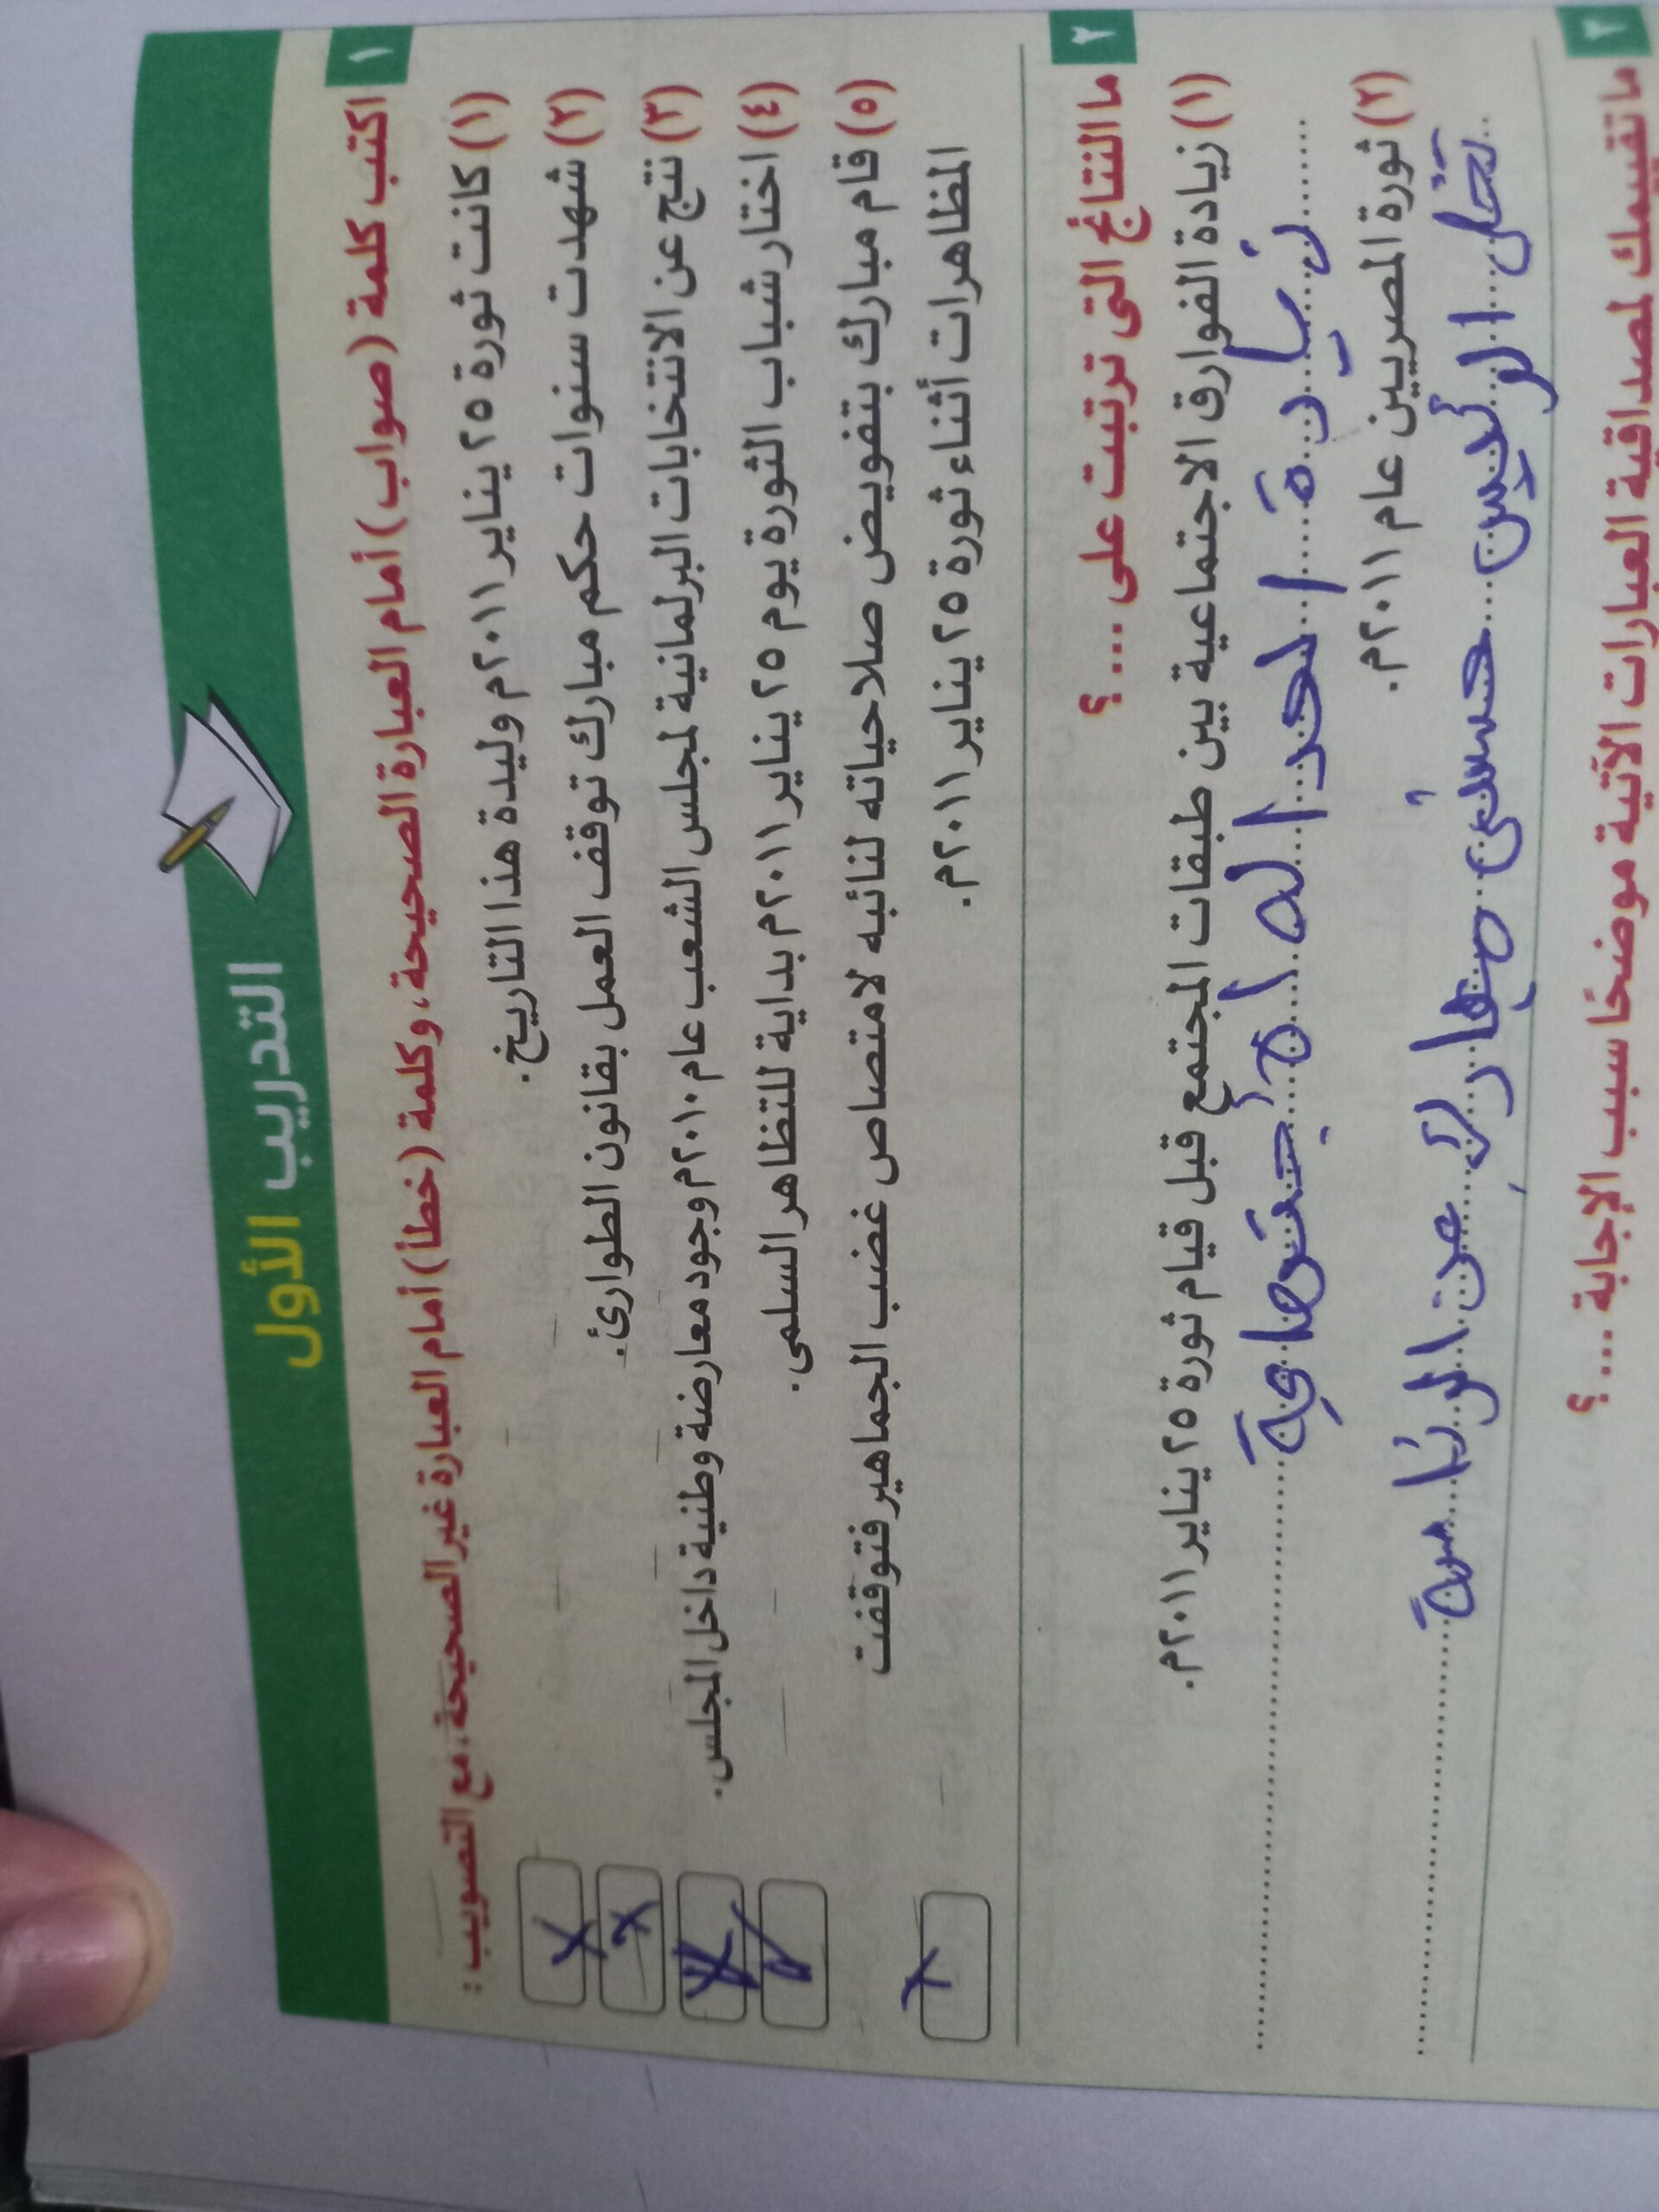 التدريب الأول
١ اكتب كلمة (صواب) أمام العبارة الصحيحة، وكلمة (خطأ) أمام العبارة غير الصحيحة، مع التصويب :
(١) كانت ثورة ٢٥ يناير ٢٠١١م وليدة هذا التاريخ. X
(٢) شهدت سنوات حكم مبارك توقف العمل بقانون الطوارئ. X
(٣) نتج عن الانتخابات البرلمانية لمجلس الشعب عام ٢٠١٠م وجود معارضة وطنية داخل المجلس. X
(٤) اختار شباب الثورة يوم ٢٥ يناير ٢٠١١م بداية للتظاهر السلمى.
(٥) قام مبارك بتفويض صلاحياته لنائبه لامتصاص غضب الجماهير فتوقفت
المظاهرات أثناء ثورة ٢٥ يناير ٢٠١١م. X
٢ ما النتائج التى ترتبت على ... ؟
(١) زيادة الفوارق الاجتماعية بين طبقات المجتمع قبل قيام ثورة ٢٥ يناير ٢٠١١م.
زيادة
(٢) ثورة المصريين عام ٢٠١١م.
تخلى الرئيس حسنى مبارك عن الرئاسة
٣ ما تقييمك لمصداقية العبارات الآتية موضحًا سبب الإجابة ... ؟